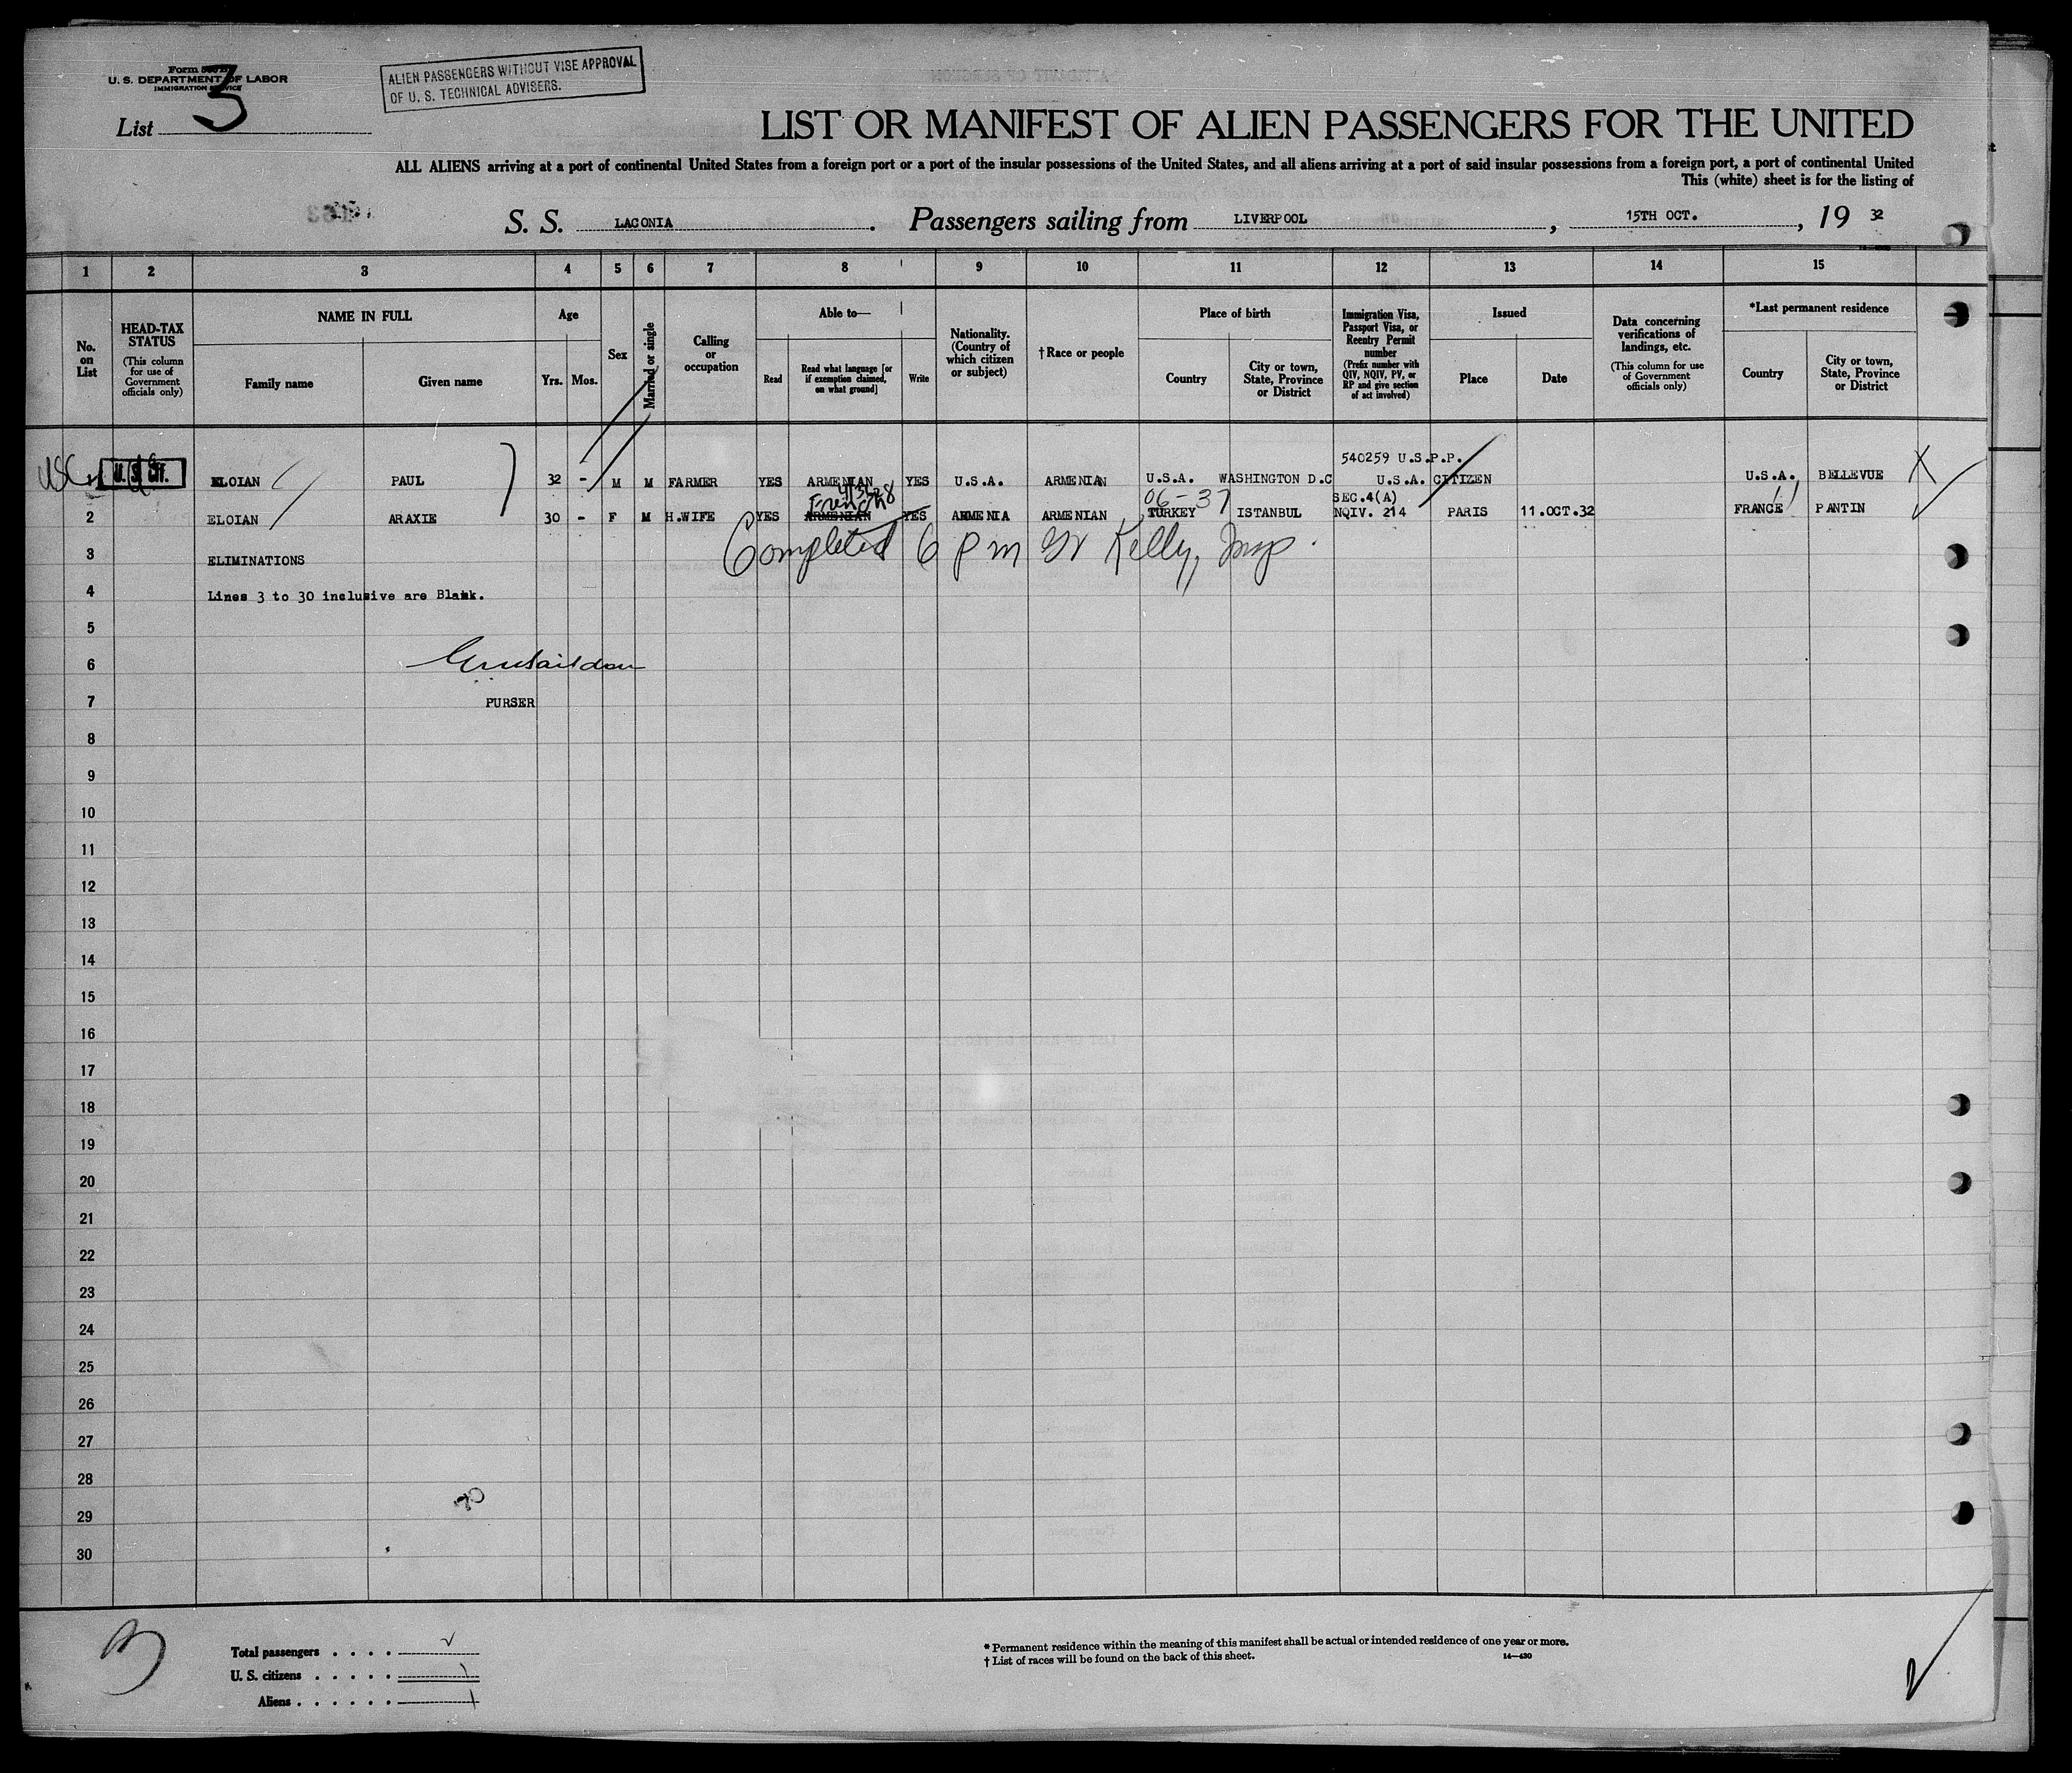 Form 500 B
U. S. DEPARTMENT OF LABOR
IMMIGRATION SERVICE
List 3
ALIEN PASSENGERS WITHOUT VISE APPROVAL
OF U. S. TECHNICAL ADVISERS.
LIST OR MANIFEST OF ALIEN PASSENGERS FOR THE UNITED
ALL ALIENS arriving at a port of continental United States from a foreign port or a port of the insular possessions of the United States, and all aliens arriving at a port of said insular possessions from a foreign port, a port of continental United
This (white) sheet is for the listing of
S. S. LACONIA. Passengers sailing from LIVERPOOL, 15TH OCT., 19 32
1 2 3 4 5 6 7 8 9 10 11 12 13 14 15
No. on List
HEAD-TAX STATUS (This column for use of Government officials only)
NAME IN FULL Family name Given name
Age Yrs. Mos.
Sex
Married or single
Calling or occupation
Able to— Read Read what language [or if exemption claimed, on what ground] Write
Nationality. (Country of which citizen or subject)
† Race or people
Place of birth Country City or town, State, Province or District
Immigration Visa, Passport Visa, or Reentry Permit number (Prefix number with QIV, NQIV, PV, or RP and give section of act involved)
Issued Place Date
Data concerning verifications of landings, etc. (This column for use of Government officials only)
*Last permanent residence Country City or town, State, Province or District
540259 U.S.P.P.
ELOIAN PAUL 32 - M M FARMER YES ARMENIAN YES U.S.A. ARMENIAN U.S.A. WASHINGTON D.C U.S.A. CITIZEN U.S.A. BELLEVUE
French 06-37 SEC.4(A)
2 ELOIAN ARAXIE 30 - F M H.WIFE YES ARMENIAN YES ARMENIA ARMENIAN TURKEY ISTANBUL NQIV. 214 PARIS 11.OCT.32 FRANCE PANTIN
Completed 6 pm Kelly, Insp.
3 ELIMINATIONS
4 Lines 3 to 30 inclusive are Blank.
5
6
7 PURSER
8
9
10
11
12
13
14
15
16
17
18
19
20
21
22
23
24
25
26
27
28
29
30
Total passengers . . . .
U. S. citizens . . . . . 1
Aliens . . . . . . 1
* Permanent residence within the meaning of this manifest shall be actual or intended residence of one year or more.
† List of races will be found on the back of this sheet.
14—430